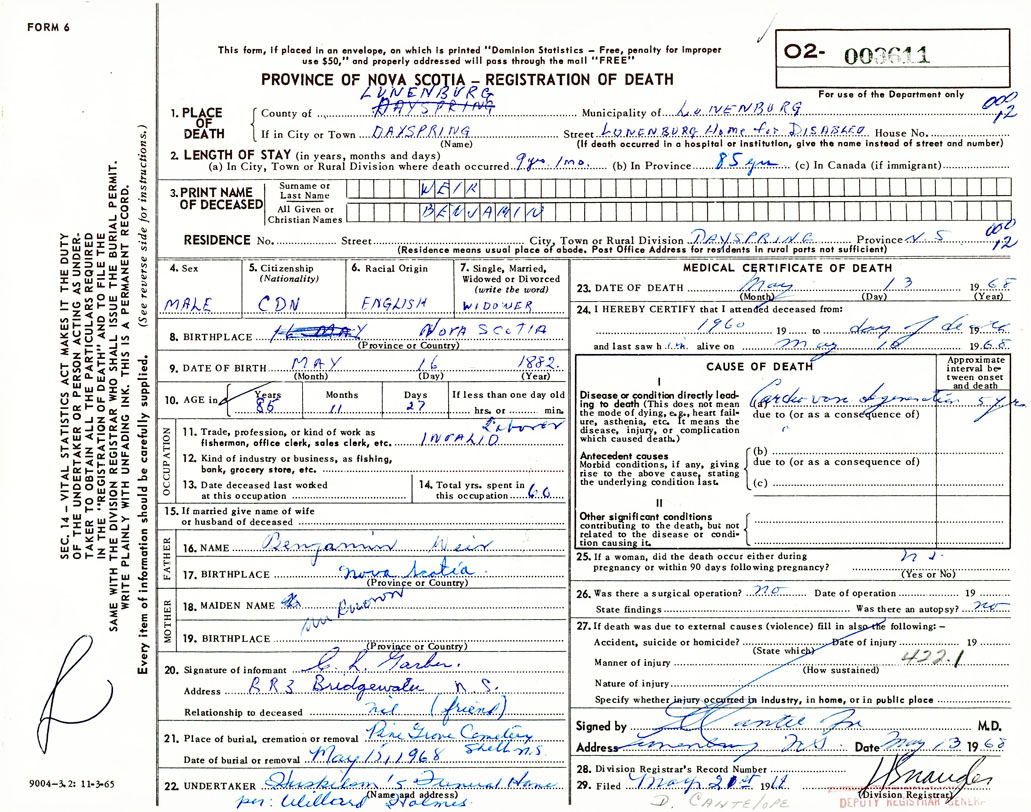 FORM 6
This form, if placed in an envelope, on which is printed "Dominion Statistics – Free, penalty for improper
use $50," and properly addressed will pass through the mail "FREE"
O2- 003611
For use of the Department only
PROVINCE OF NOVA SCOTIA – REGISTRATION OF DEATH
LUNENBURG
1. PLACE OF DEATH County of DAYSPRING Municipality of LUNENBURG 000 12
If in City or Town DAYSPRING Street LUNENBURG Home for DISABLED House No.
(Name) (If death occurred in a hospital or institution, give the name instead of street and number)
2. LENGTH OF STAY (in years, months and days)
(a) In City, Town or Rural Division where death occurred 9 yrs 1 mo. (b) In Province 85 yrs (c) In Canada (if immigrant)
3. PRINT NAME OF DECEASED
Surname or Last Name WEIR
All Given or Christian Names BENJAMIN
RESIDENCE No. Street City, Town or Rural Division DAYSPRING Province N S 000 12
(Residence means usual place of abode. Post Office Address for residents in rural parts not sufficient)
4. Sex MALE
5. Citizenship (Nationality) CDN
6. Racial Origin ENGLISH
7. Single, Married, Widowed or Divorced (write the word) WIDOWER
8. BIRTHPLACE 16 MAY NOVA SCOTIA
(Province or Country)
9. DATE OF BIRTH MAY 16 1882.
(Month) (Day) (Year)
10. AGE in Years Months Days If less than one day old
85 11 27 hrs. or min.
OCCUPATION
11. Trade, profession, or kind of work as fishermen, office clerk, sales clerk, etc. INVALID Laborer
12. Kind of industry or business, as fishing, bank, grocery store, etc.
13. Date deceased last worked at this occupation
14. Total yrs. spent in this occupation 60
15. If married give name of wife or husband of deceased
FATHER
16. NAME Benjamin Weir
17. BIRTHPLACE Nova Scotia
(Province or Country)
MOTHER
18. MAIDEN NAME unknown
19. BIRTHPLACE
(Province or Country)
20. Signature of informant C. L. Garber.
Address RR3 Bridgewater N.S.
Relationship to deceased nil (friend)
21. Place of burial, cremation or removal Pine Grove Cemetery
Date of burial or removal May 15, 1968 N.S.
22. UNDERTAKER Funeral Home
(Name and address)
per: Willard Holmes
MEDICAL CERTIFICATE OF DEATH
23. DATE OF DEATH May 13 1968
(Month) (Day) (Year)
24. I HEREBY CERTIFY that I attended deceased from:
1960 19 to day of death 19
and last saw him alive on May 10 1968
CAUSE OF DEATH
Approximate interval between onset and death
I
Disease or condition directly leading to death (This does not mean the mode of dying, e.g., heart failure, asthenia, etc. It means the disease, injury, or complication which caused death.)
(a) degeneration 5 yrs
due to (or as a consequence of)
Antecedent causes
Morbid conditions, if any, giving rise to the above cause, stating the underlying condition last.
(b)
due to (or as a consequence of)
(c)
II
Other significant conditions contributing to the death, but not related to the disease or condition causing it.
25. If a woman, did the death occur either during pregnancy or within 90 days following pregnancy?
(Yes or No)
26. Was there a surgical operation? no Date of operation 19
State findings Was there an autopsy? no
27. If death was due to external causes (violence) fill in also the following: –
Accident, suicide or homicide? Date of injury 19
(State which)
Manner of injury 422.1
(How sustained)
Nature of injury
Specify whether injury occurred in Industry, in home, or in public place
Signed by M.D.
Address Lunenburg N.S. Date May 13 1968
28. Division Registrar's Record Number
29. Filed May 21st 19
(Division Registrar)
D. CANTELOPE
DEPUTY REGISTRAR GENERAL
SEC. 14 – VITAL STATISTICS ACT MAKES IT THE DUTY
OF THE UNDERTAKER OR PERSON ACTING AS UNDER-
TAKER TO OBTAIN ALL THE PARTICULARS REQUIRED
IN THE "REGISTRATION OF DEATH" AND TO FILE THE
SAME WITH THE DIVISION REGISTRAR WHO SHALL ISSUE THE BURIAL PERMIT.
WRITE PLAINLY WITH UNFADING INK. THIS IS A PERMANENT RECORD.
Every item of information should be carefully supplied. (See reverse side for instructions.)
9004-3.2: 11-3-65